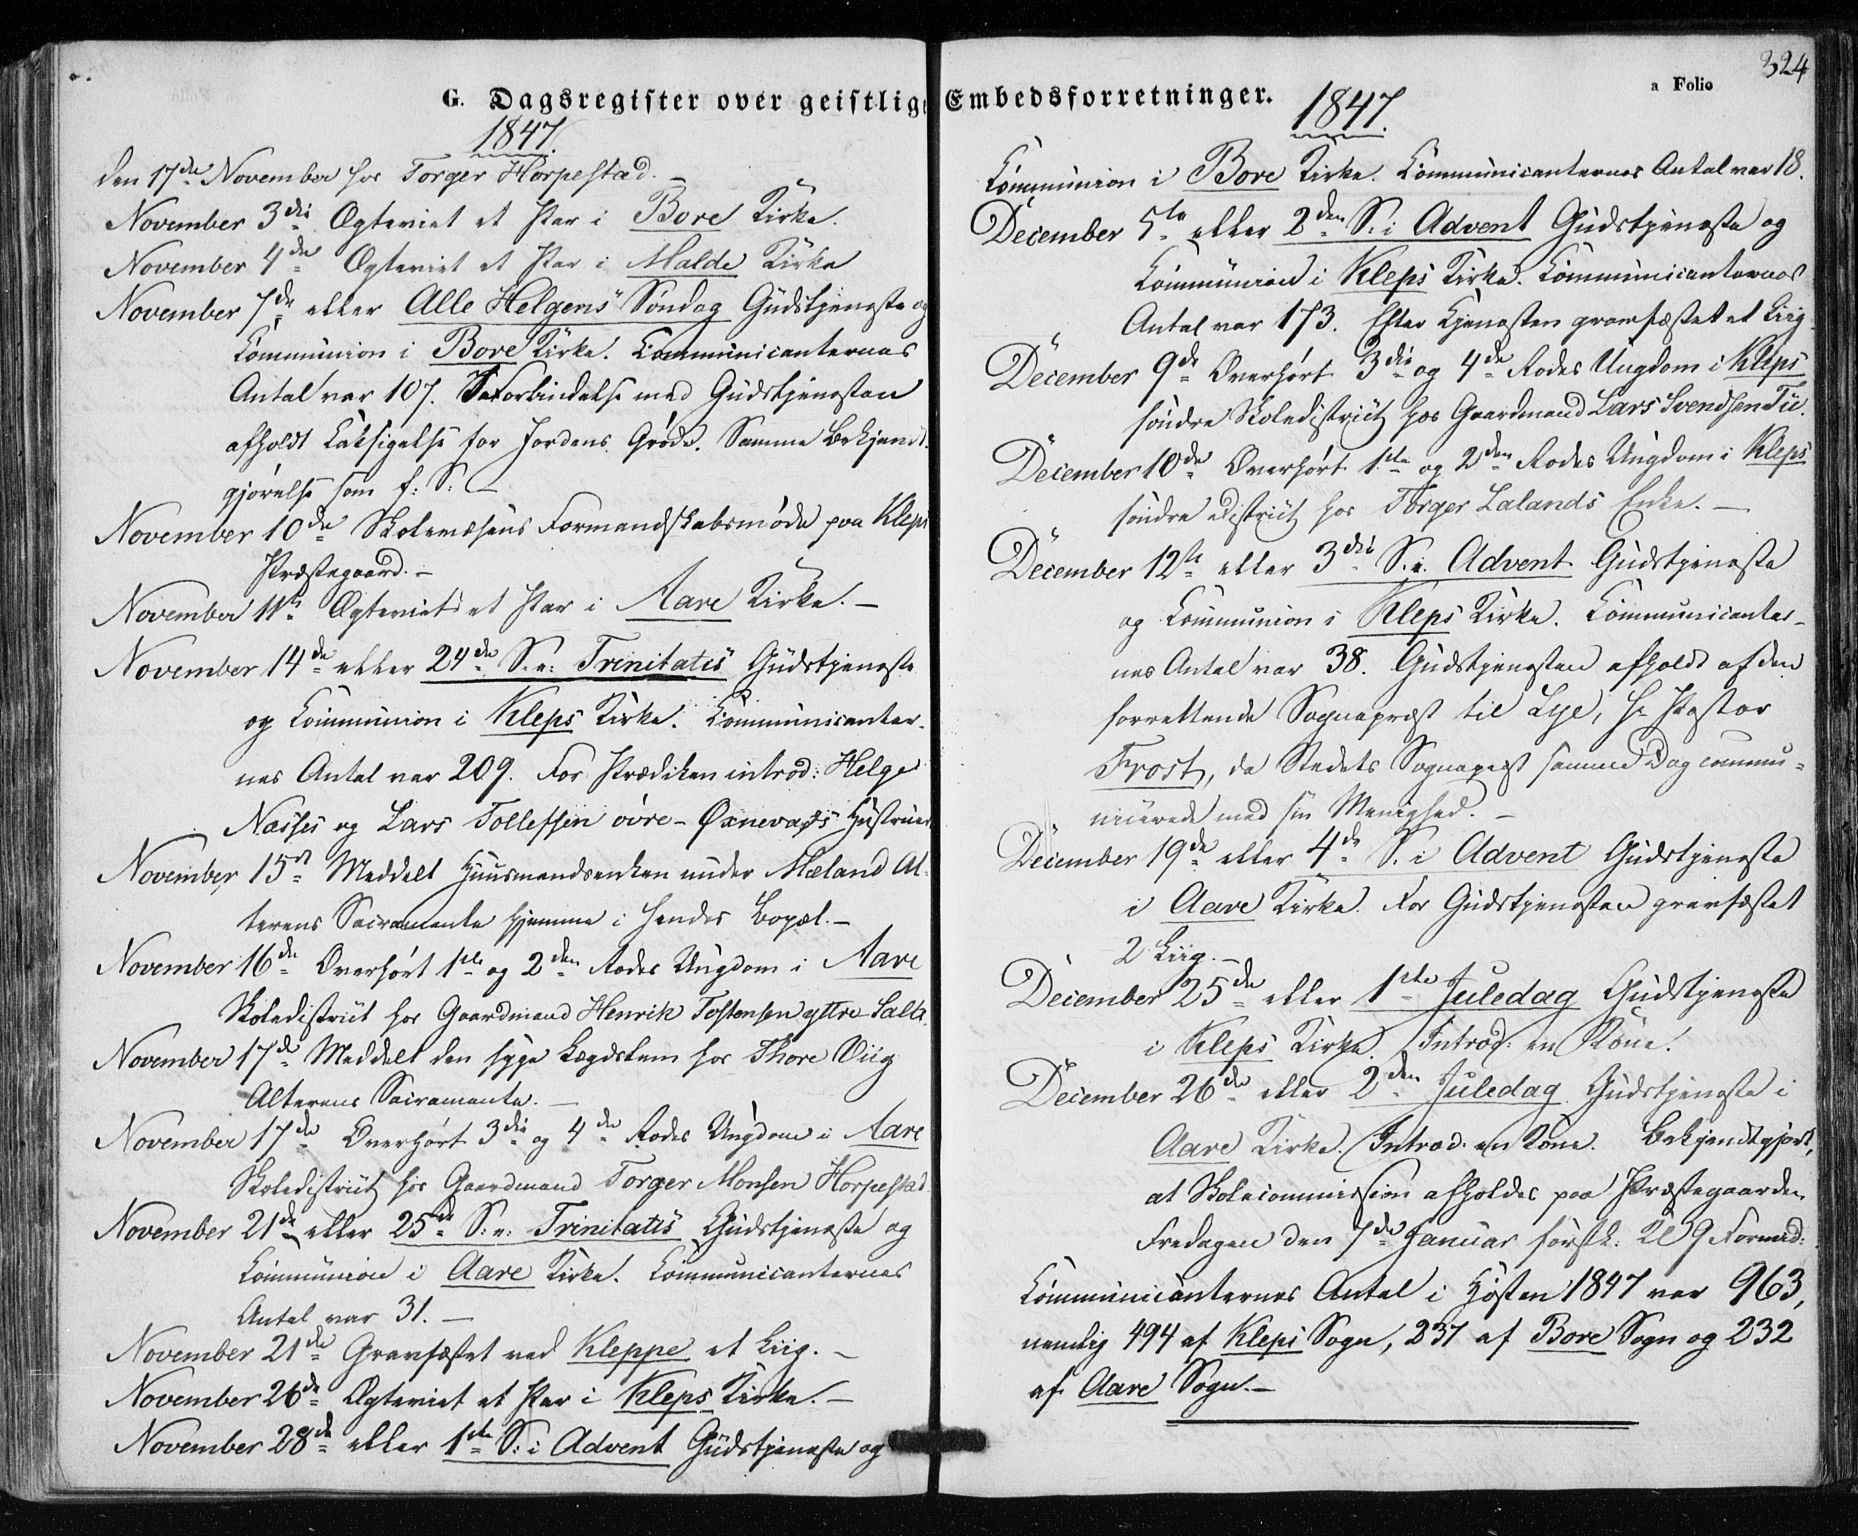 G. Dagsregister over geistlige Embedsforretninger.
a Folio
324
1847.
den 17de November hos Torger Horpestad.
November 3die Ægteviet et Par i Bore Kirke.
November 4de Ægteviet et Par i Malde Kirke
November 7de eller Alle Helgens Søndag Gudstjeneste og
Communion i Bore Kirke. Communicanternes
Antal var 107. I Forbindelse med Gudstjenesten
afholdt Taksigelse for Jordens Grøde. Samme Bekjendt-
gjørelse som f: S:
November 10de Skolevæsens Formandskabsmøde paa Kleps
Præstegaard.
November 11te Ægteviet et Par i Aare Kirke.
November 14de eller 24de S. e. Trinitatis Gudstjeneste
og Communion i Kleps Kirke. Communicanter-
nes Antal var 209. For Prædiken introd: Helge
Næsses og Lars Tollefsen øvre-Øxnevads Hustruer
November 15de Meddelt Huusmandsenken under Mæland Al-
terens Sacramente hjemme i hendes Bopæl.
November 16de Overhørt 1ste og 2den Rodes Ungdom i Aare
Skoledistrict hos Gaardmand Henrik Tostensen yttre Salte.
November 17de Meddelt den syge Lægdslem hos Thore Viig
Alterens Sacramente.
November 17de Overhørt 3die og 4de Rodes Ungdom i Aare
Skoledistrict hos Gaardmand Torger Monsen Horpestad
November 21de eller 25de S. e. Trinitatis Gudstjeneste og
Communion i Aare Kirke. Communicanternes
Antal var 31.
November 21de Gravfæstet ved Kleppe et Liig.
November 26de Ægteviet et Par i Kleps Kirke.
November 28de eller 1ste S. i Advent Gudstjeneste og
1847.
Communion i Bore Kirke. Communicanternes Antal var 18.
December 5te eller 2den S. i Advent Gudstjeneste og
Communion i Kleps Kirke. Communicanternes
Antal var 173. Efter Tjenesten gravfæstet et Liig.
December 9de Overhørt 3die og 4de Rodes Ungdom i Kleps
søndre Skoledistrict hos Gaardmand Lars Svendsen Tu.
December 10de Overhørt 1ste og 2den Rodes Ungdom i Kleps
søndre District hos Torger Lalands Enke.
December 12te eller 3die S. i Advent Gudstjeneste
og Communion i Kleps Kirke. Communicanter-
nes Antal var 38. Gudstjenesten afholdt af den
forrettende Sognepræst til Lye, Hr Pastor
Frost, da Stedets Sognepræst samme Dag commu-
nicerede med sin Menighed.
December 19de eller 4de S. i Advent Gudstjeneste
i Aare Kirke. For Gudstjenesten gravfæstet
2 Liig.
December 25de eller 1ste Juledag Gudstjeneste
i Kleps Kirke. Introd: en Kone.
December 26de eller 2den Juledag Gudstjeneste i
Aare Kirke. Introd. en Kone. Bekjendtgjort,
at Skolecommission afholdes paa Præstegaarden
Fredagen den 7de Januar førstk: Kl 9 Formid:
Communicanternes Antal i Høsten 1847 var 963,
nemlig 494 af Kleps Sogn, 237 af Bore Sogn og 232
af Aare Sogn.